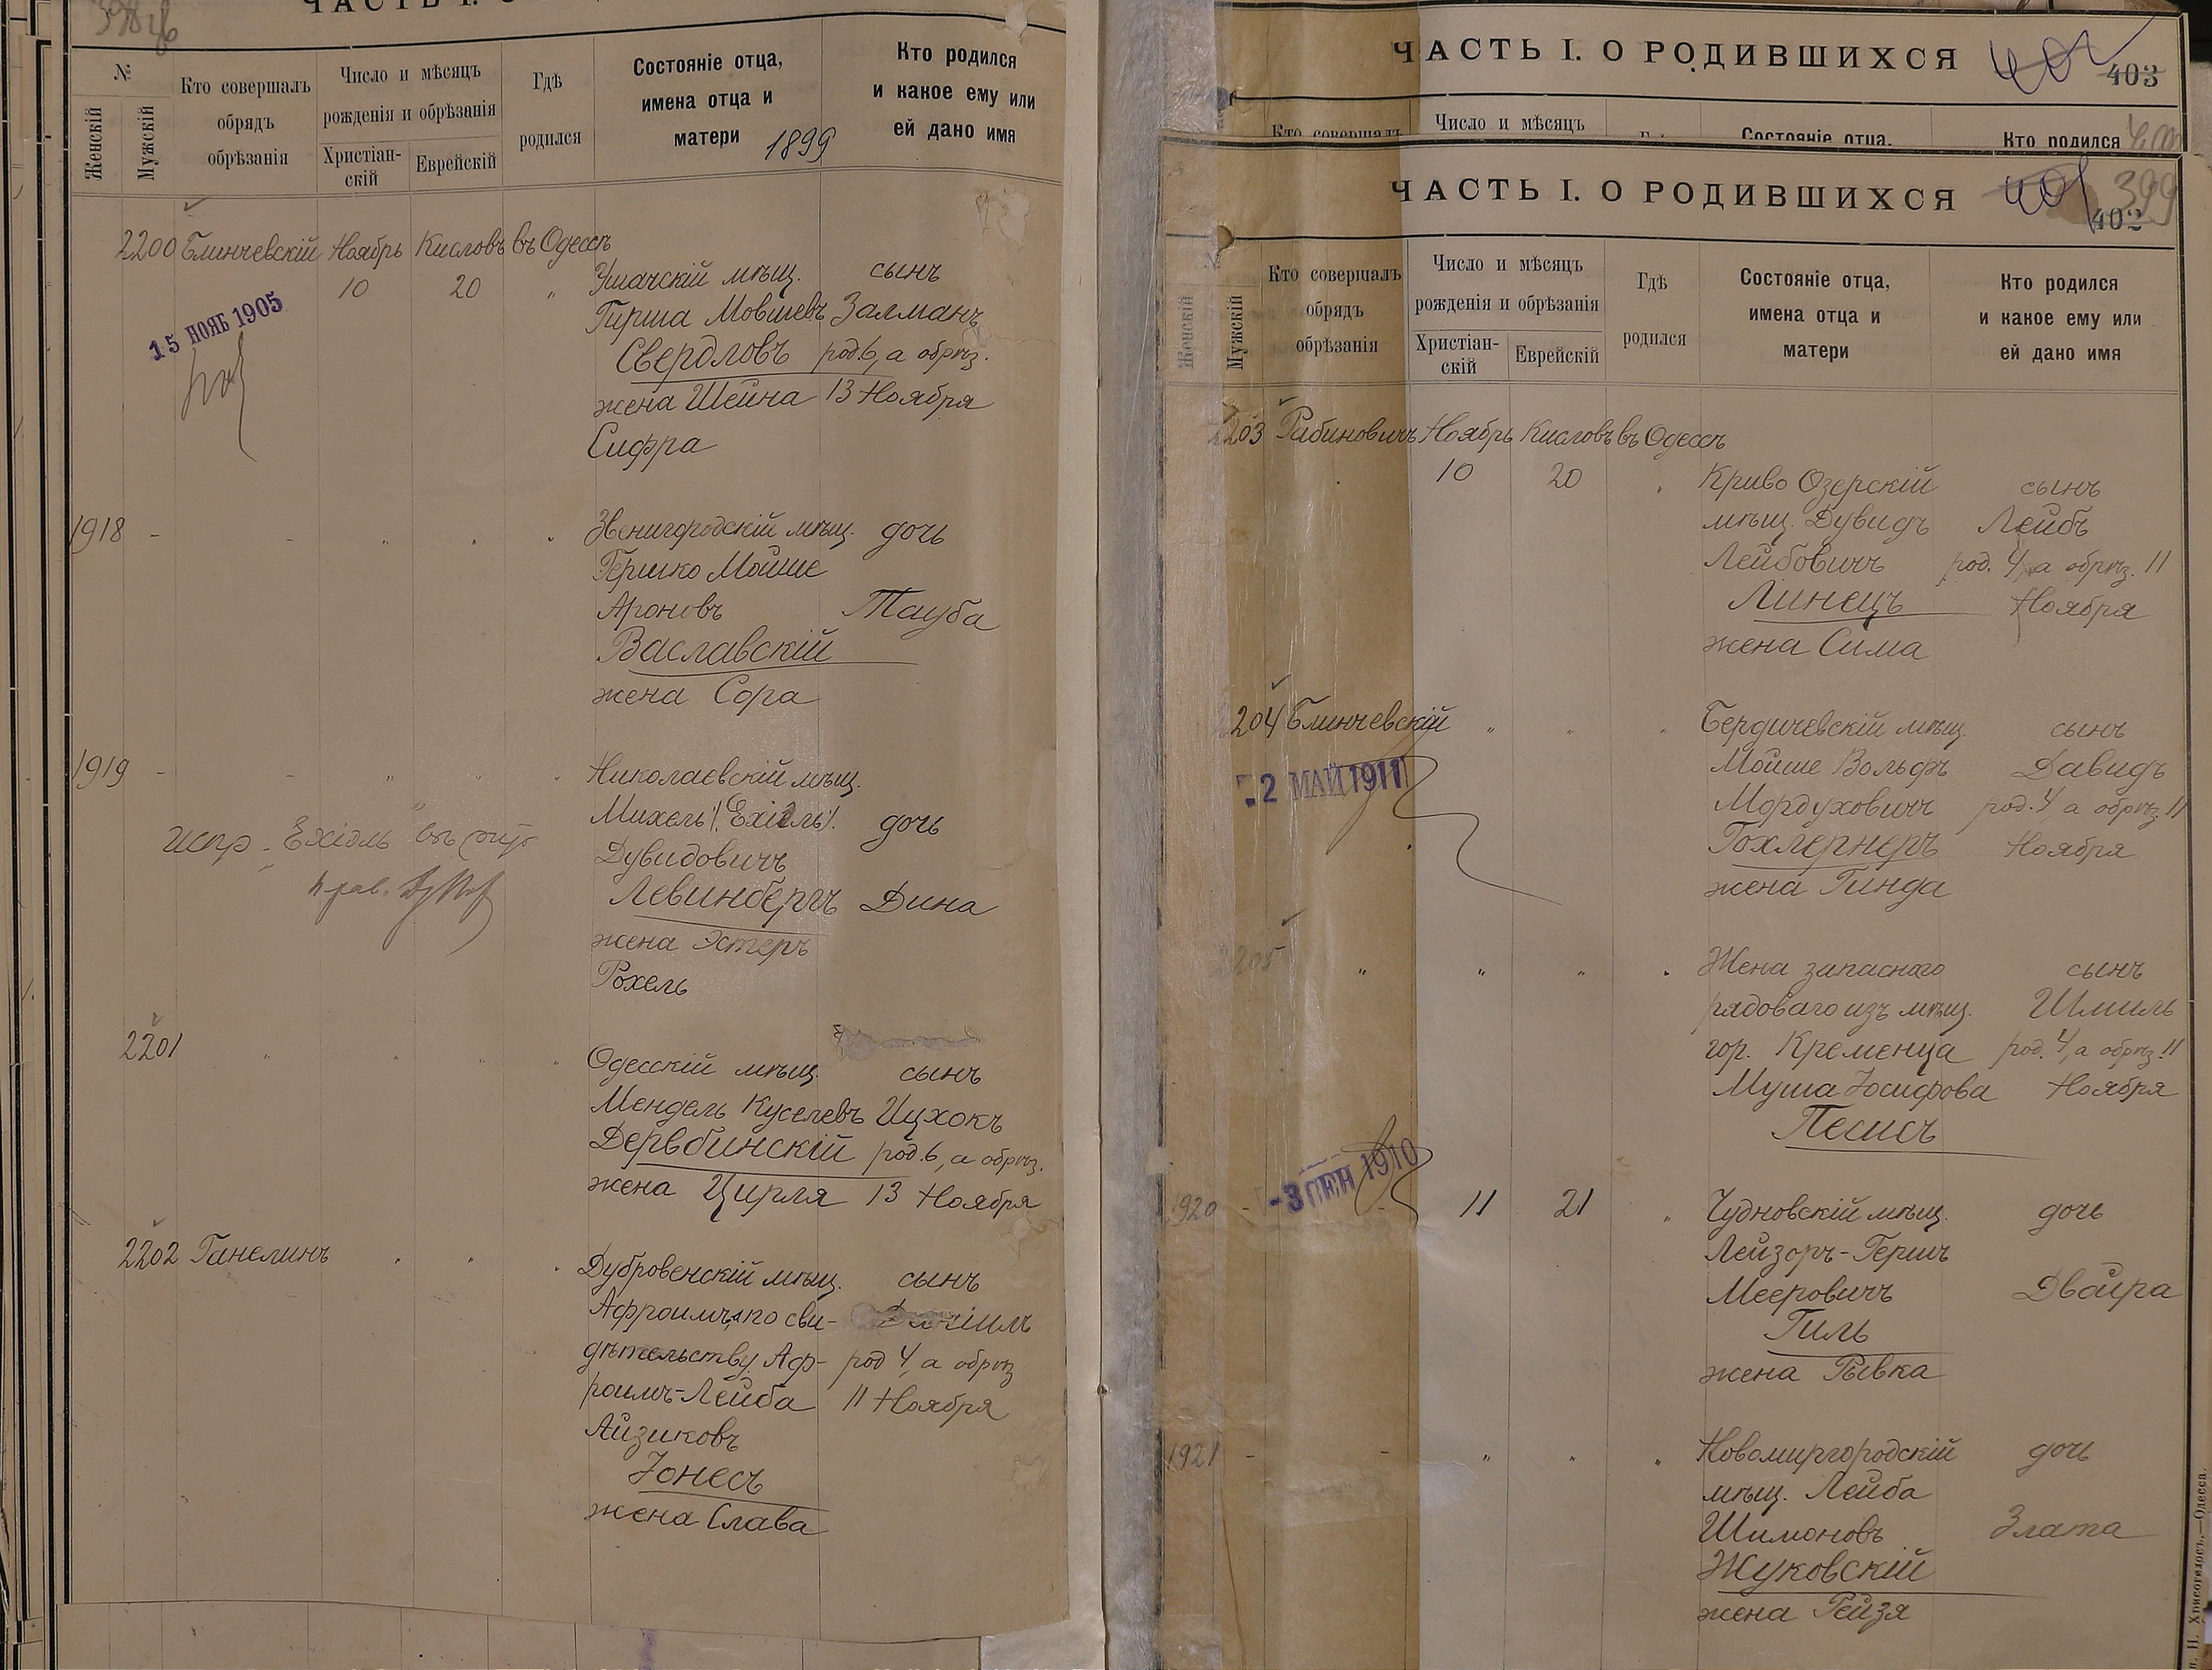 398
ЧАСТЬ I.
№
Женскій
Мужскій
Кто совершалъ
обрядъ
обрѣзанія
Число и мѣсяцъ
рожденія и обрѣзанія
Христіан-
скій
Еврейскій
Гдѣ
родился
Состояніе отца,
имена отца и
матери
1899
Кто родился
и какое ему или
ей дано имя
2200 Блинчевскій Ноябрь Кисловъ въ Одессѣ
10 20 "
15 НОЯБ 1905
Ушачскій мѣщ. сынъ
Гирша Мовшевъ Залманъ
Свердловъ род. 6, а обрѣз.
жена Шейна 13 Ноября
Сифра
1918 - - " " "
Звенигородскій мѣщ. дочь
Гершко Мойше
Ароновъ Тауба
Ваславскій
жена Сора
1919 - - " " "
Николаевскій мѣщ.
Михель /Ехіель/. дочь
Дувидовичъ
Левинбергъ Дина
жена Эстеръ
Рохель
испр. Ехіэль
2201 " " " "
Одесскій мѣщ. сынъ
Мендель Куселевъ Ицхокъ
Дервбинскій род. 6, а обрѣз.
жена Цирля 13 Ноября
2202 Ганелинъ " " "
Дубровенскій мѣщ. сынъ
Афроимъ, а по сви-
дѣтельству Аф- род 4, а обрѣз
роимъ-Лейба 11 Ноября
Айзиковъ
Іонесъ
жена Слава
ЧАСТЬ I. О РОДИВШИХСЯ
402
403
Кто совершалъ
Число и мѣсяцъ
Гдѣ
Состояніе отца,
Кто родился
ЧАСТЬ I. О РОДИВШИХСЯ
401
399
402
Женскій
Мужскій
Кто совершалъ
обрядъ
обрѣзанія
Число и мѣсяцъ
рожденія и обрѣзанія
Христіан-
скій
Еврейскій
Гдѣ
родился
Состояніе отца,
имена отца и
матери
Кто родился
и какое ему или
ей дано имя
2203 Рабиновичъ Ноябрь Кисловъ въ Одессѣ
10 20 "
Криво Озерскій сынъ
мѣщ. Дувидъ Лейбъ
Лейбовичъ род. 4, а обрѣз. 11
Линецъ Ноября
жена Сима
2204 Блинчевскій " " "
2 МАЙ 1911
Бердичевскій мѣщ. сынъ
Мойше Вольфъ Давидъ
Мордуховичъ род. 4 а обрѣз. 11
Гохлернеръ Ноября
жена Гинда
2205 " " " "
Жена запаснаго сынъ
рядоваго изъ мѣщ. Шмиль
гор. Кременца род. 4, а обрѣз. 11
Муша Іосифова Ноября
Песисъ
-3 СЕН 1910
1920 - - 11 21 "
Чудновскій мѣщ. дочь
Лейзоръ-Гершъ
Мееровичъ Двойра
Гиль
жена Рывка
1921 - - " " "
Новомиргородскій дочь
мѣщ. Лейба
Шимоновъ Злата
Жуковскій
жена Рейзя
Н. Хрисогелосъ.—Одесса.